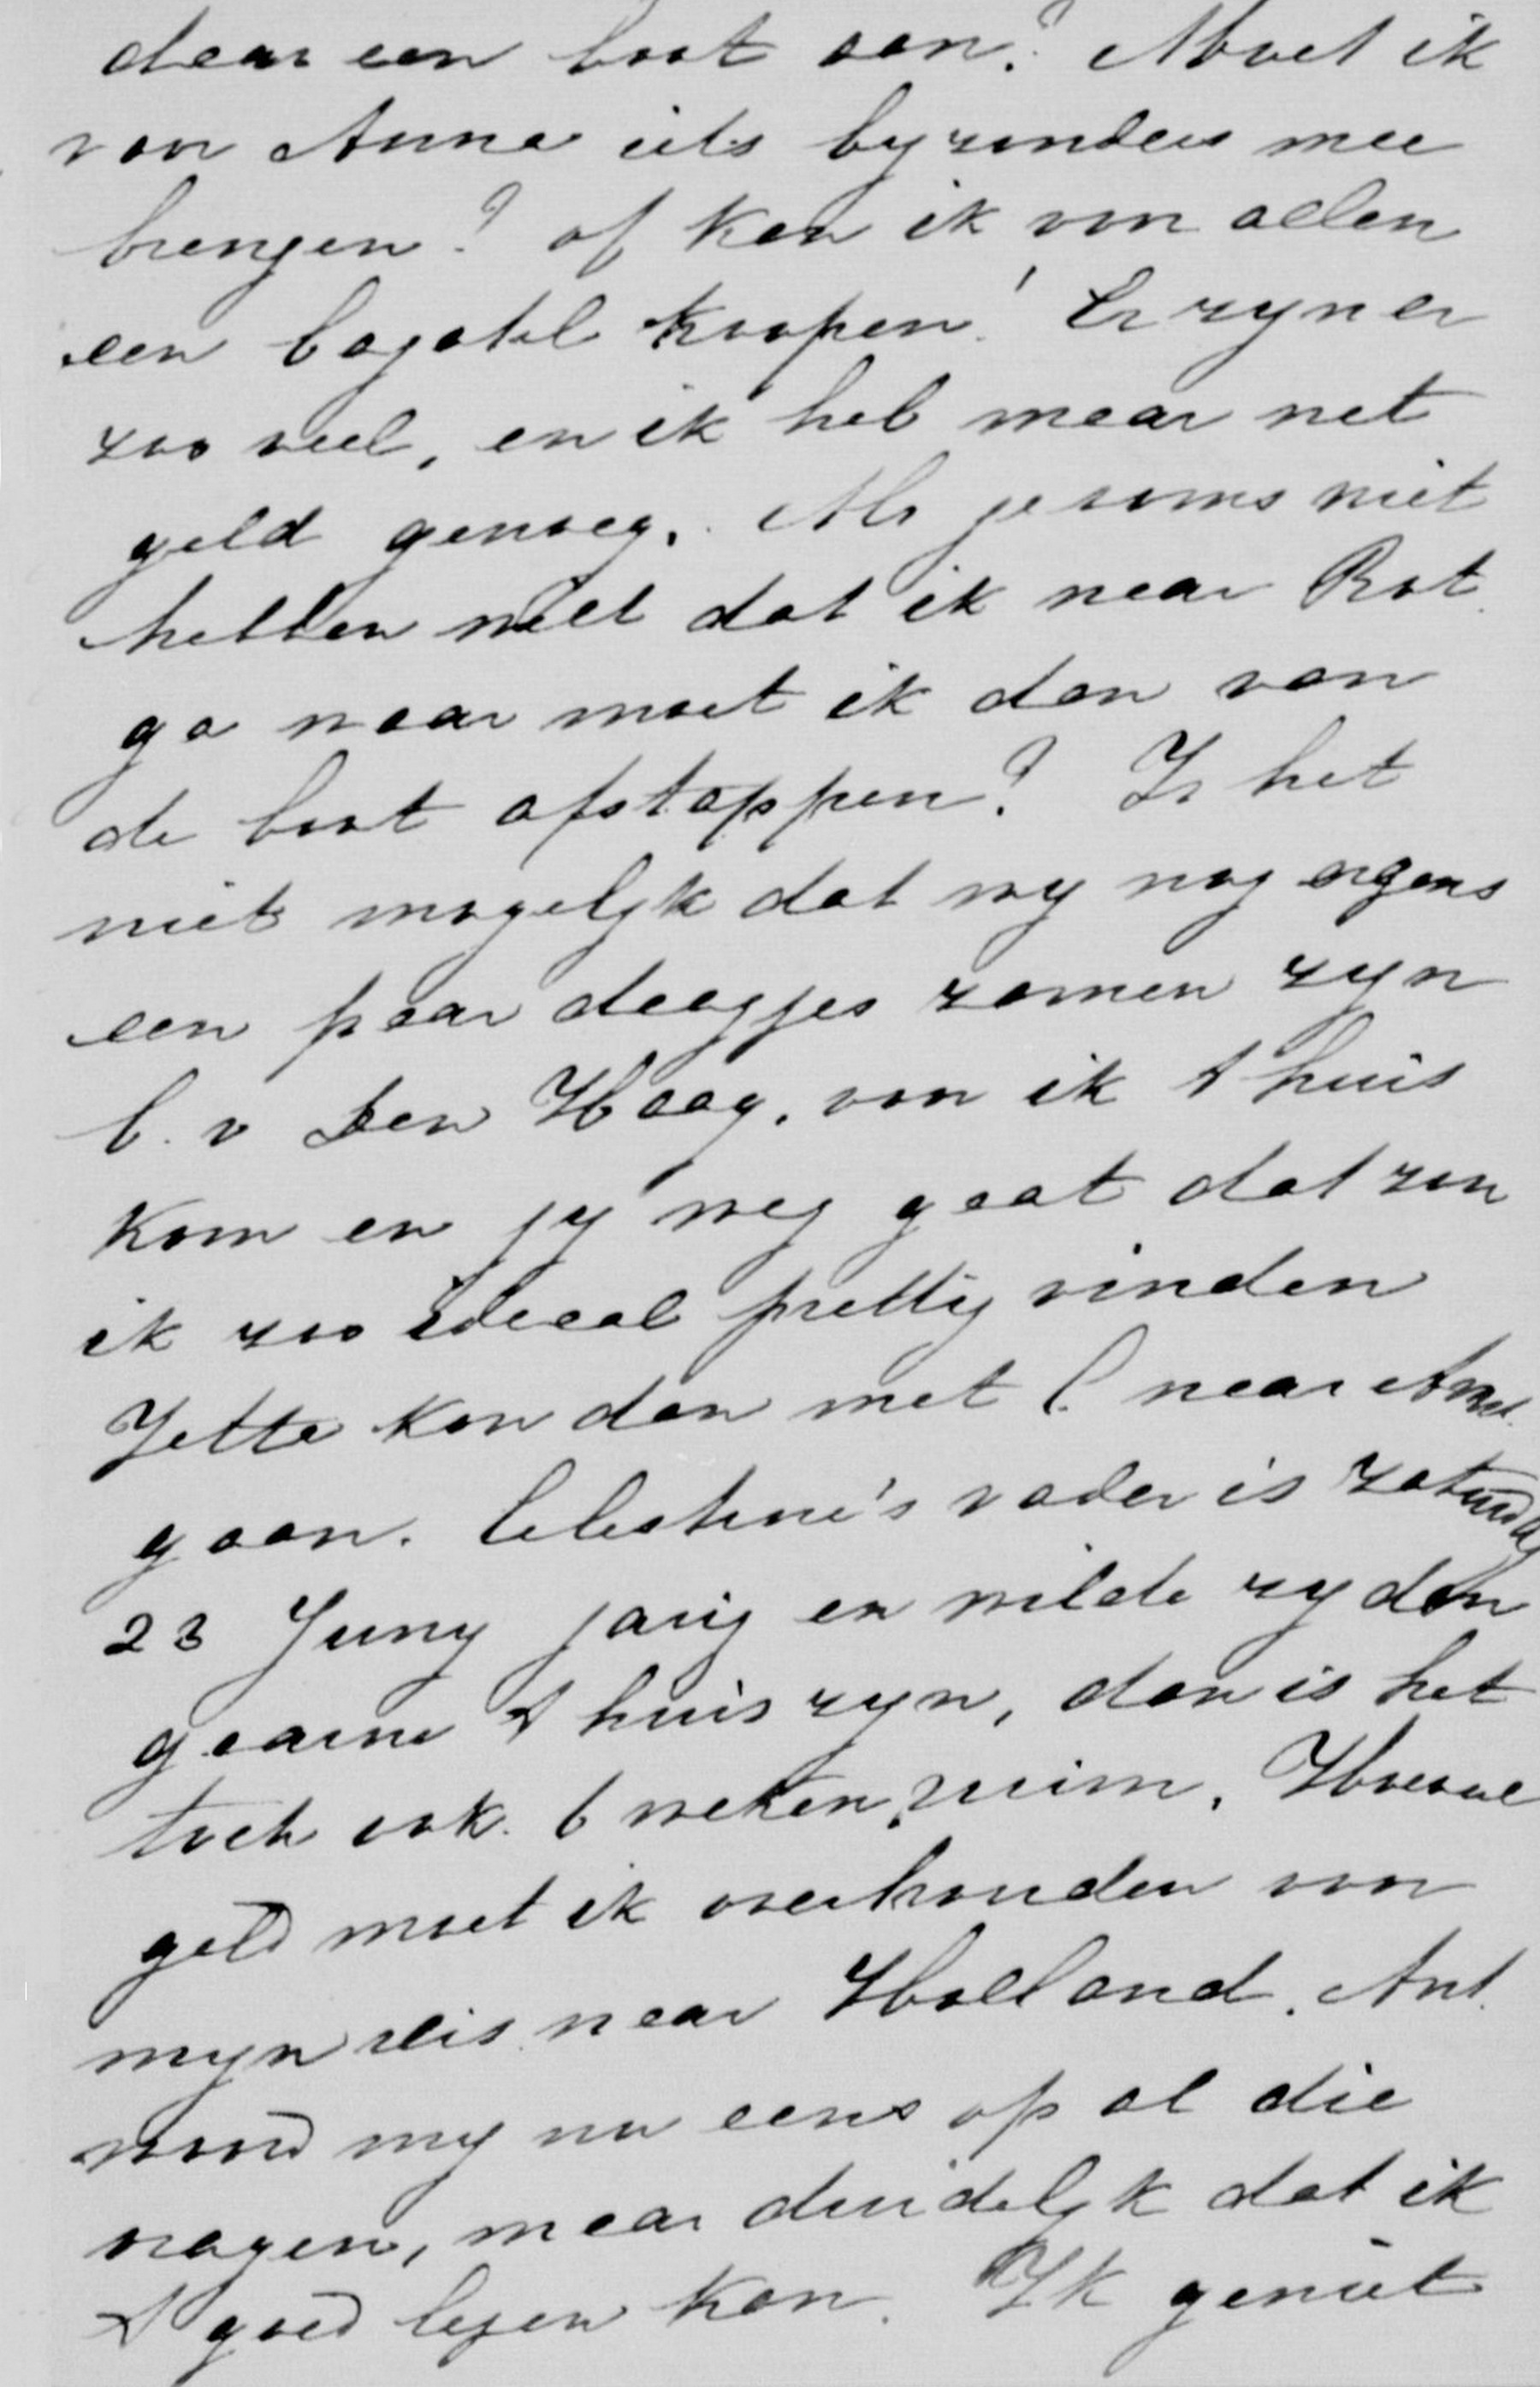 daar een boot aan? Moet ik
van Anna iets byzonders mee
brengen? of kan ik van allen
een bagatel koopen! Er zyn er
zoo veel, en ik heb maar net
geld genoeg. Als je soms niet
hebben wilt dat ik naar Rot.
ga waar moet ik dan van
de boot afstappen? Is het
niet mogelyk dat wy nog ergens
een paar daagjes zamen zyn
b. v Den Haag. van ik t huis
kom en jy weg gaat dat zou
ik zoo ideaal prettig vinden
Jette kan dan met C. naar Amst.
gaan. Celestine's vader is zaturdag
23 Juny jarig en wilde zy dan
gaarne t huis zyn, dan is het
toch ook 6 weken ruim. Hoeveel
geld moet ik overhouden van
myn reis naar Holland. Ant.
woord my nu eens op al die
vragen, maar duidelyk dat ik
t goed lezen kan. Ik geniet